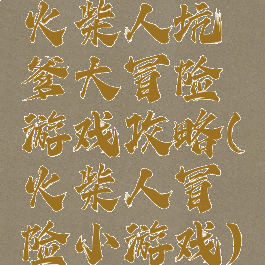 火柴人坑
爹大冒险
游戏攻略(
火柴人冒
险小游戏)